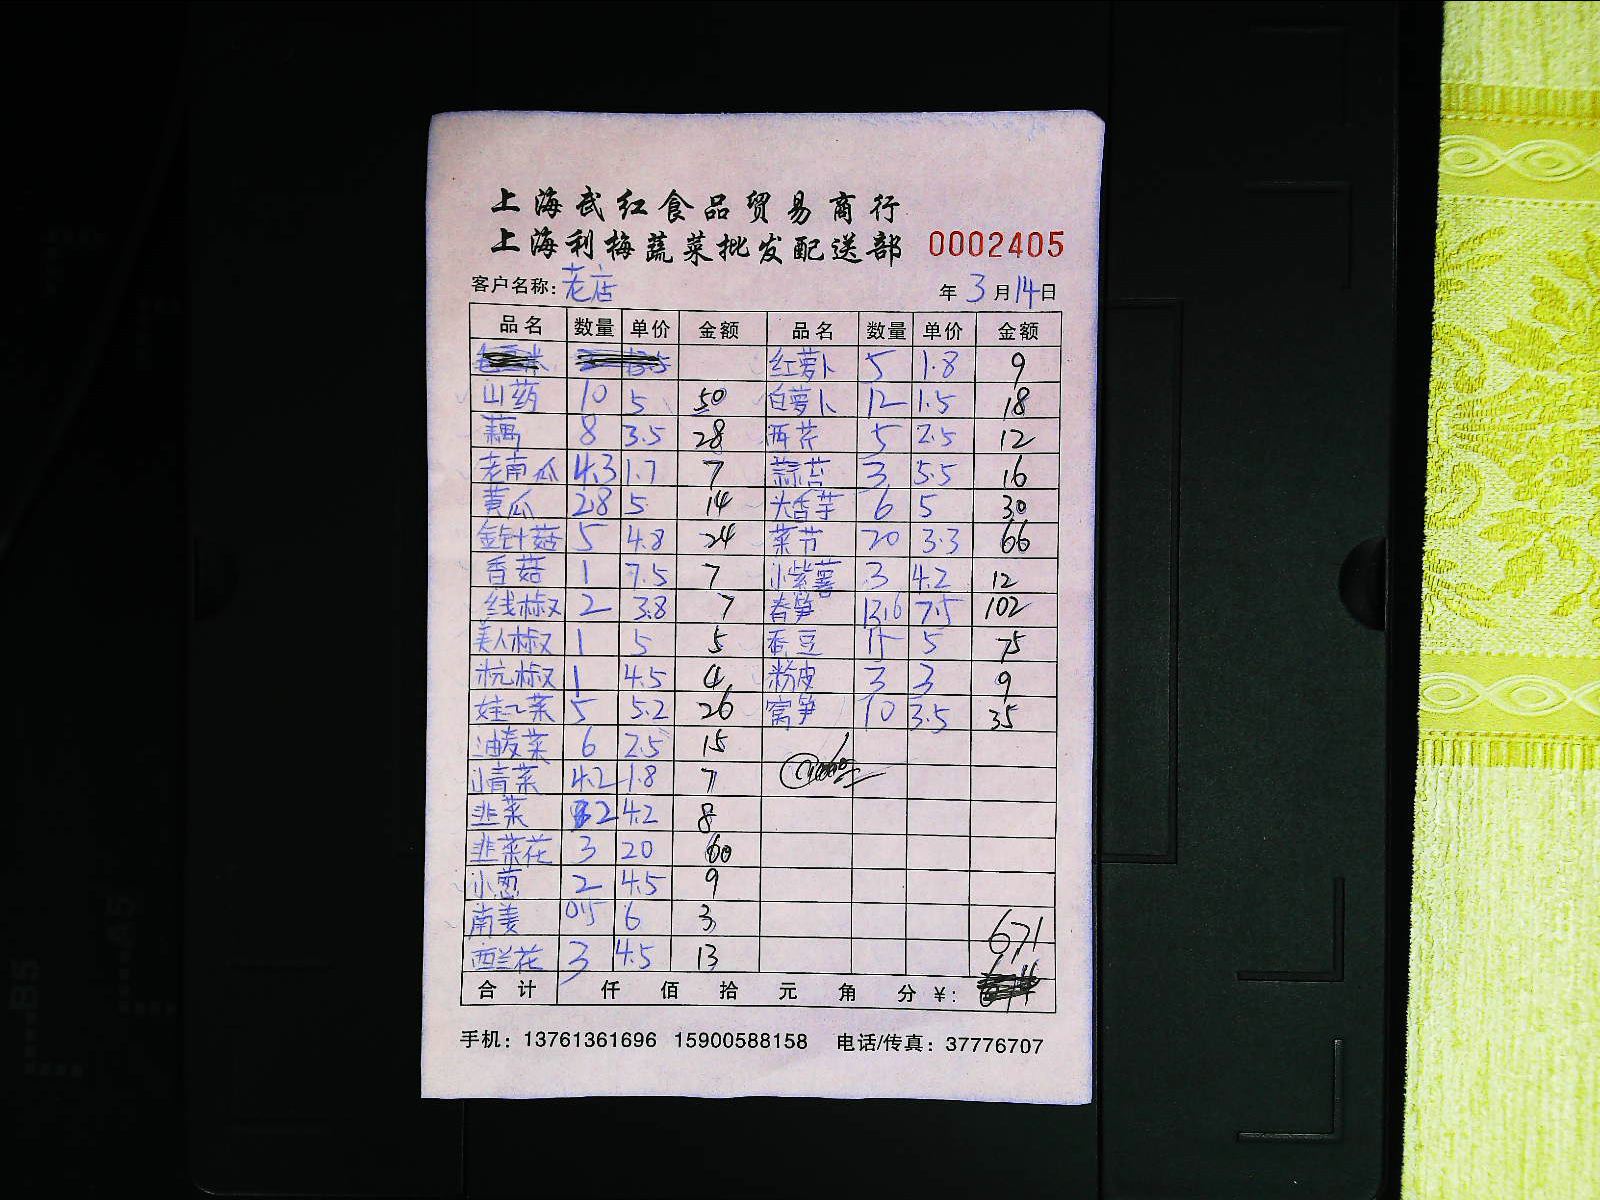 上海武红食品贸易商行
上海利梅蔬菜批发配送部 0002405
客户名称: 老店 年 3 月 14 日
品名 数量 单价 金额 品名 数量 单价 金额
红萝卜 5 1.8 9
山药 10 5 50 白萝卜 12 1.5 18
藕 8 3.5 28 西芹 5 2.5 12
老南瓜 4.3 1.7 7 蒜苔 3 5.5 16
黄瓜 2.8 5 14 大香芋 6 5 30
金针菇 5 4.8 24 菜节 20 3.3 66
香菇 1 7.5 7 小紫薯 3 4.2 12
线椒 2 3.8 7 春笋 13.6 7.5 102
美人椒 1 5 5 蚕豆 15 5 75
杭椒 1 4.5 4 粉皮 3 3 9
娃娃菜 5 5.2 26 窝笋 10 3.5 35
油麦菜 6 2.5 15
小青菜 4.2 1.8 7
韭菜 2 4.2 8
韭菜花 3 20 60
小葱 2 4.5 9
南姜 0.5 6 3
西兰花 3 4.5 13
671
合计 仟 佰 拾 元 角 分 ¥:
手机: 13761361696 15900588158 电话/传真: 37776707